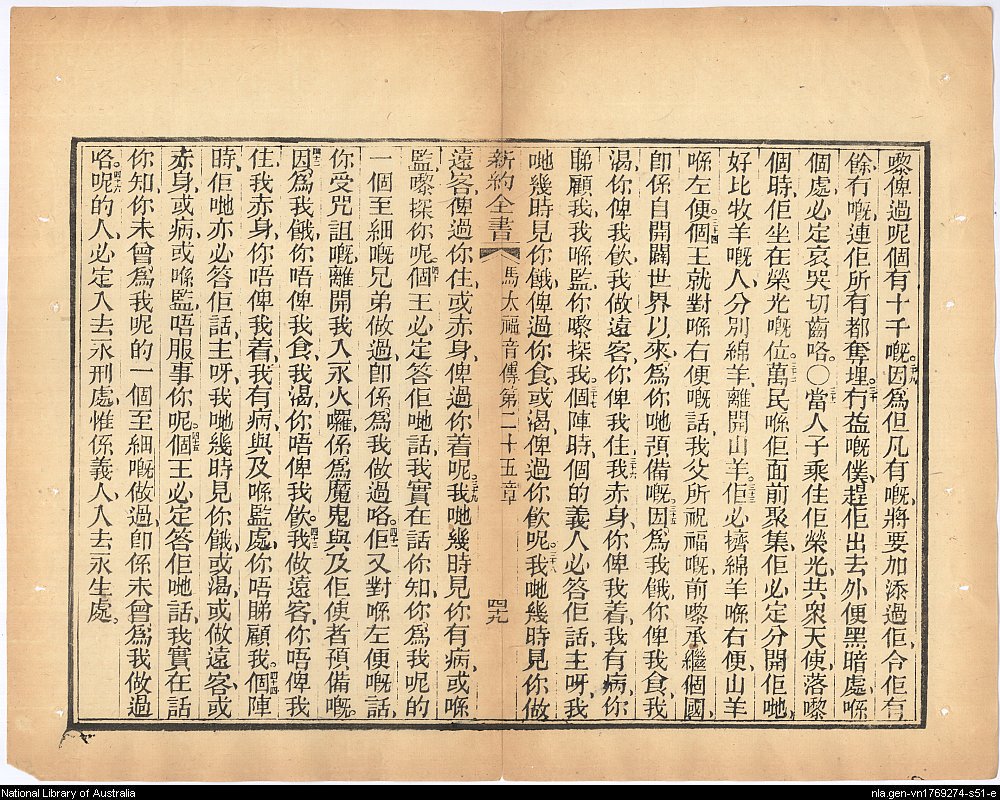 嚟俾過呢個有十千嘅。因為但凡有嘅將要加添過佢、令佢有
餘、冇嘅、連佢所有都奪埋。冇益嘅僕、趕佢出去外便黑暗處、喺
個處必定哀哭切齒咯。〇當人子乘住佢榮光、共衆天使落嚟、
個時佢坐在榮光嘅位。萬民喺佢面前聚集、佢必定分開佢哋、
好比牧羊嘅人、分別綿羊離開山羊。佢必擠綿羊喺右便、山羊
喺左便。個王就對喺右便嘅話、我父所祝福嘅、前嚟承繼個國、
卽係自開闢世界以來、為你哋預備嘅。因為我餓、你俾我食、我
渴、你俾我飲、我做遠客、你俾我住、我赤身、你俾我着、我有病、你
睇顧我、我喺監、你嚟探我。個陣時、個的義人必答佢話、主呀、我
哋幾時見你餓、俾過你食、或渴、俾過你飲呢。我哋幾時見你做
新約全書 馬太福音傳第二十五章 四十九
遠客、俾過你住、或赤身、俾過你着呢。我哋幾時見你有病、或喺
監、嚟探你呢。個王必定答佢哋話、我實在話你知、你為我呢的
一個至細嘅兄弟做過、卽係為我做過咯。佢又對喺左便嘅話、
你受咒詛嘅、離開我、入永火囉、係為魔鬼與及佢使者預備嘅。
因為我餓、你唔俾我食、我渴、你唔俾我飲。我做遠客、你唔俾我
住、我赤身、你唔俾我着、我有病、與及喺監處、你唔睇顧我。個陣
時、佢哋亦必答佢話、主呀、我哋幾時見你餓、或渴、或做遠客、或
赤身、或病、或喺監、唔服事你呢。個王必定答佢哋話、我實在話
你知、你未曾為我呢的一個至細嘅做過、卽係未曾為我做過
咯。呢的人、必定入去永刑處、惟係義人、入去永生處。
National Library of Australia
nla.gen-vn1769274-s51-e